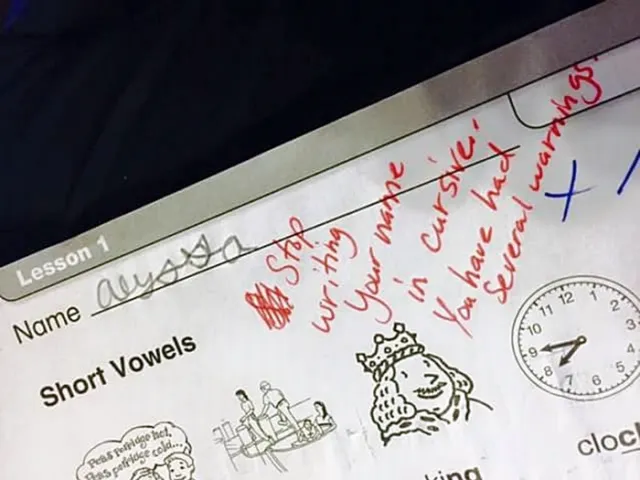 Lesson 1
Name alyssa
Stop
writing
your name
in cursive.
You have had
several warnings.
Short Vowels
Peas porridge hot,
Peas porridge cold...
11 12 1
10 2
9 3
8 4
7 6 5
king
clock